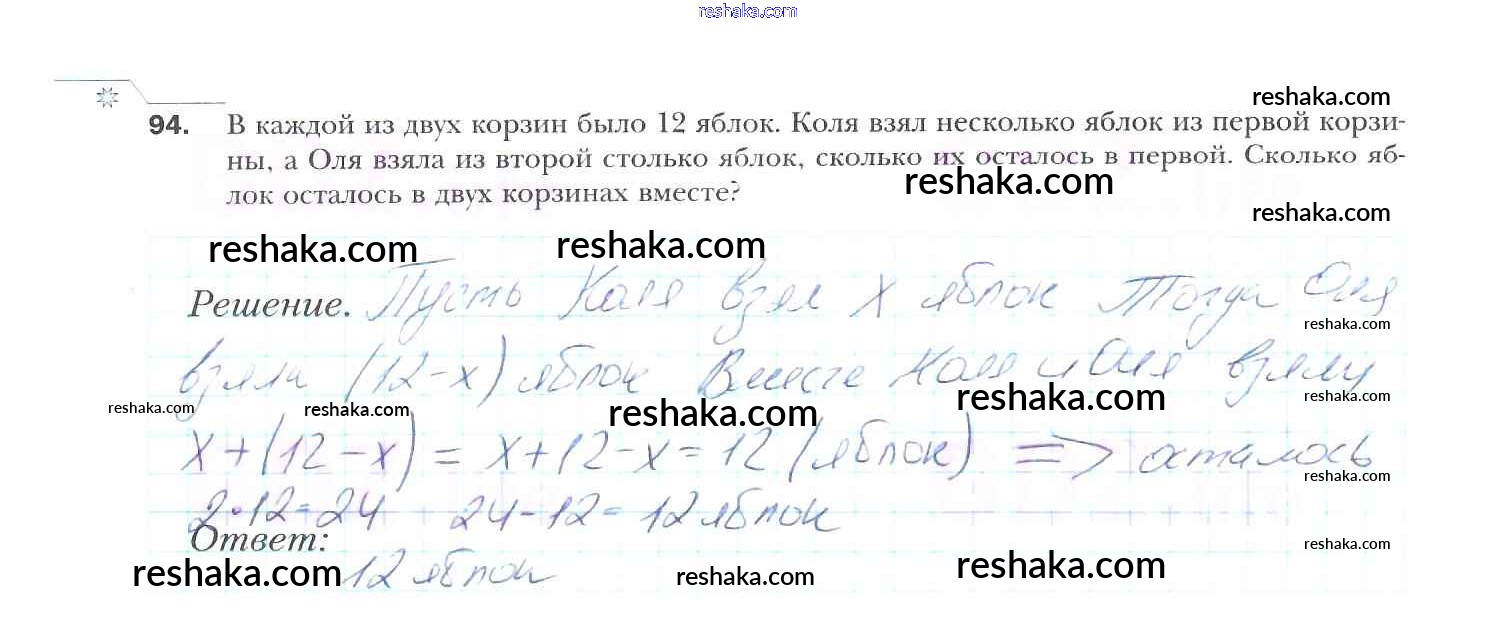 reshaka.com
reshaka.com
94. В каждой из двух корзин было 12 яблок. Коля взял несколько яблок из первой корзи-
ны, а Оля взяла из второй столько яблок, сколько их осталось в первой. Сколько яб-
reshaka.com
лок осталось в двух корзинах вместе?
reshaka.com
reshaka.com reshaka.com
Решение. Пусть Коля взял x яблок Тогда Оля
reshaka.com
взяла (12-x) яблок Вместе Коля и Оля взяли
reshaka.com reshaka.com reshaka.com reshaka.com reshaka.com
x+(12-x) = x+12-x=12 (яблок) => осталось
reshaka.com
2•12=24 24-12=12 яблок
Ответ:
reshaka.com
12 яблок
reshaka.com reshaka.com reshaka.com